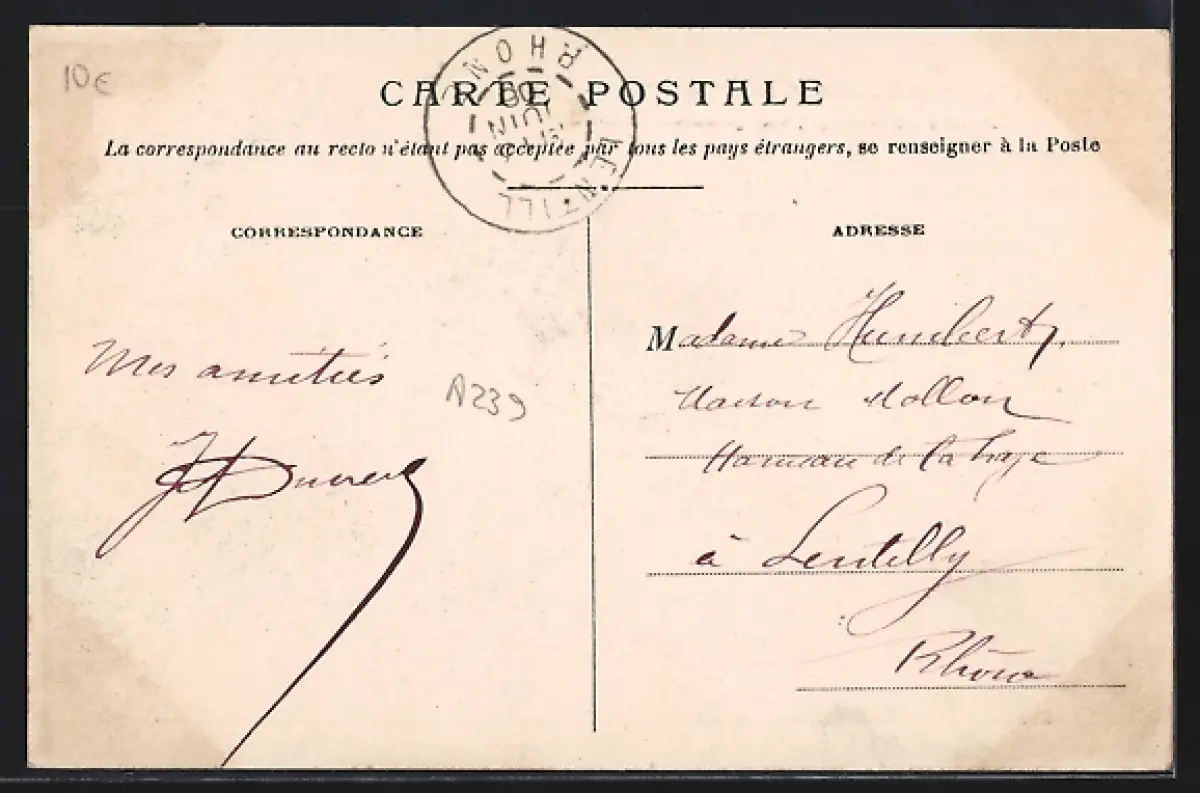 10€
RHONE
LENTILLY
JUIN
CARTE POSTALE
La correspondance au recto n'étant pas acceptée par tous les pays étrangers, se renseigner à la Poste
CORRESPONDANCE
Mes amitiés
A239
ADRESSE
Madame Humbert,
Maison Mollon
Hameau de la
à Lentilly
Rhône